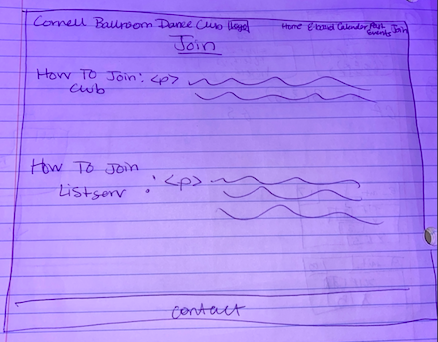 Cornell Ballroom Dance Club [Logo] Home E-board Calendar Past Events Join
Join
How To Join: <p>
Club
How To Join
Listserv : <p>
contact